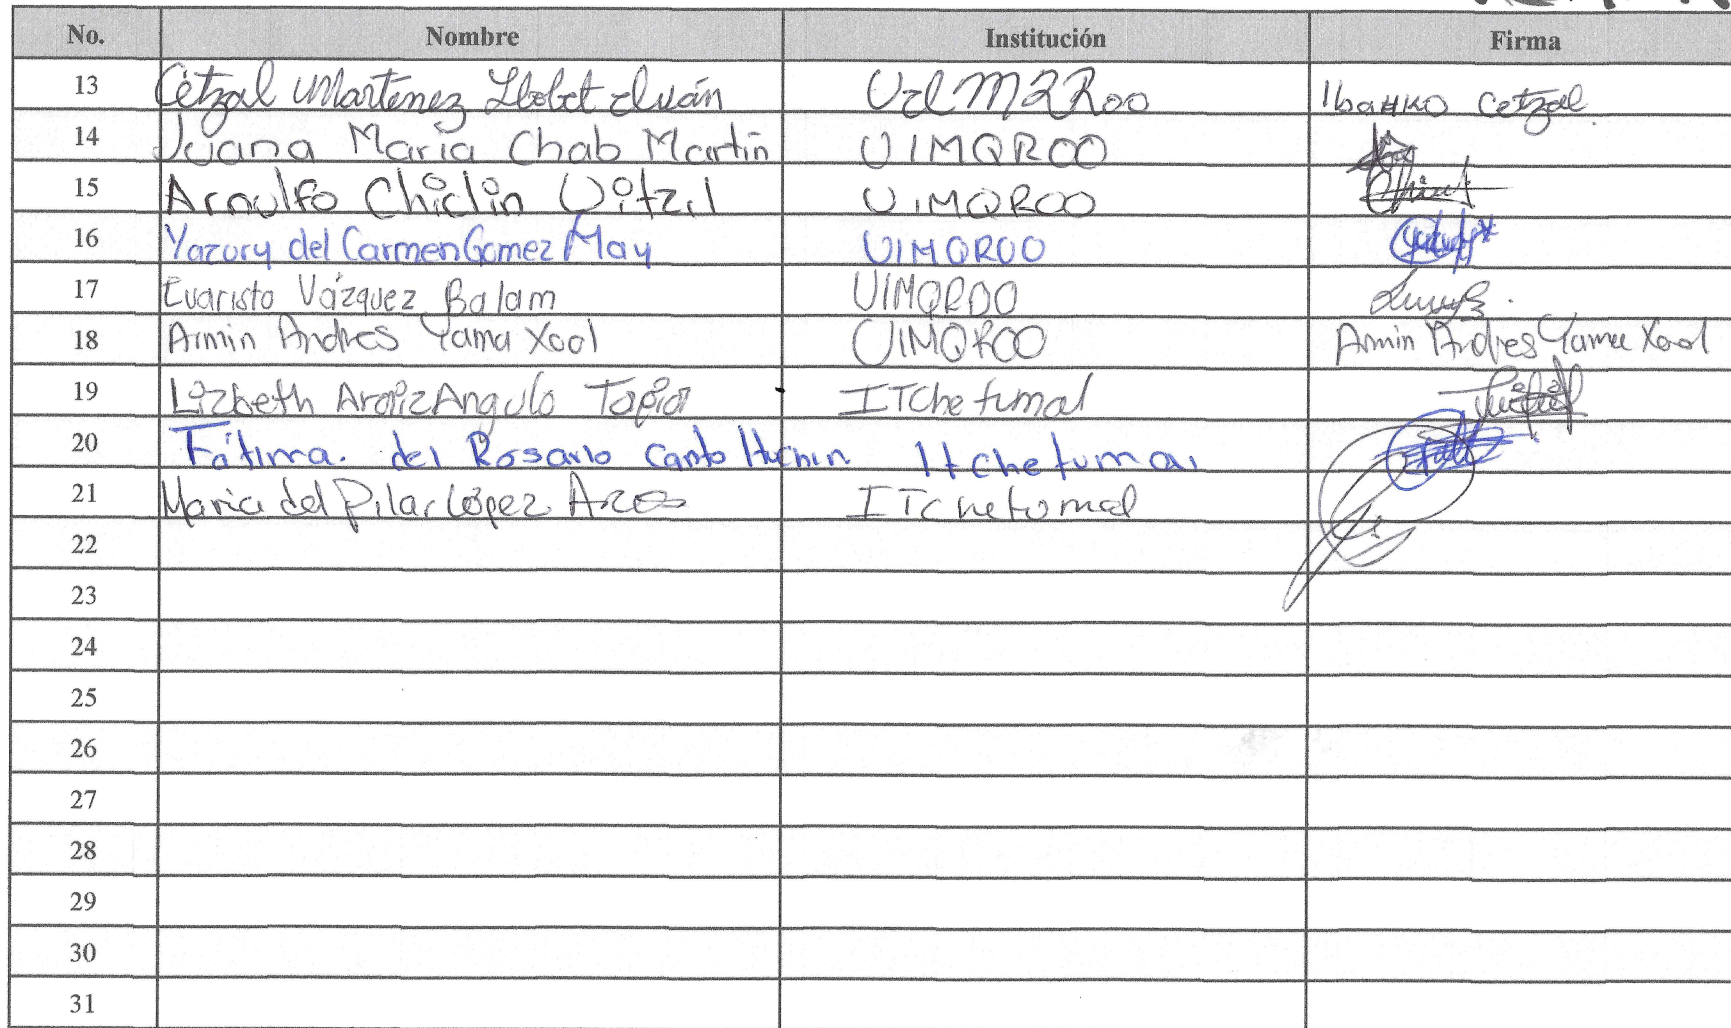 No. Nombre Institución Firma
13 Cetzal Martinez Iván UIMQRoo Cetzal
14 Juana María Chab Martín UIMQROO
15 Arnulfo Chiclin Witzil UIMQROO
16 Yazury del Carmen Gomez May UIMQROO
17 Evaristo Vázquez Balam UIMQROO
18 Armin Andres Yama Xool UIMQROO Armin Andres Yama Xool
19 Lizbeth Angulo Tapia ITChetumal
20 Fátima. del Rosario Canto Huchin Itchetumal
21 Maria del Pilar López ITChetumal
22
23
24
25
26
27
28
29
30
31